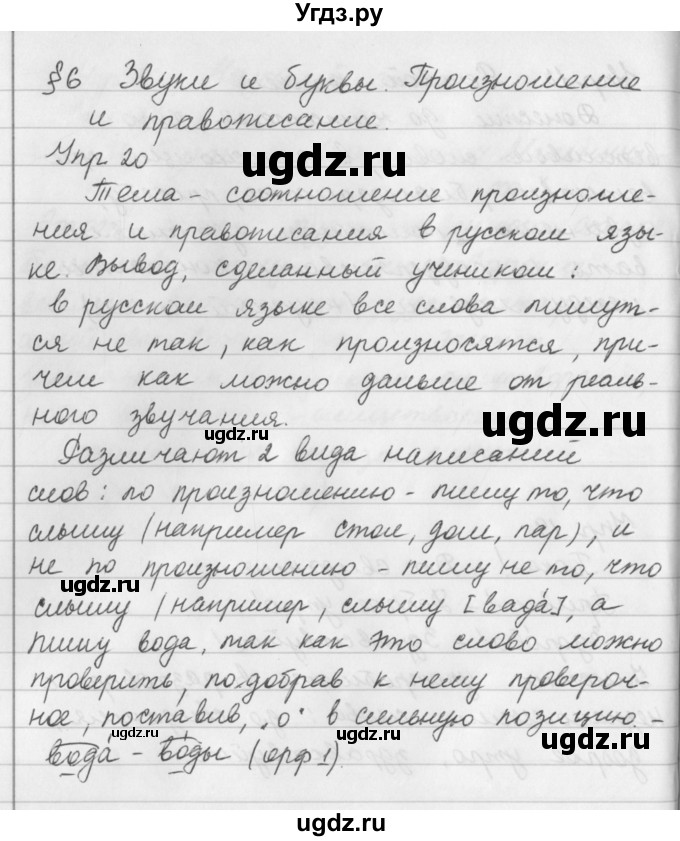 Угдз.ру
§6 Звуки и буквы. Произношение
и правописание.
Упр 20
ugdz.ru
Тема - соотношение произноше-
ния и правописания в русском язы-
ке. Вывод, сделанный учеником:
в русском языке все слова пишут-
ся не так, как произносятся, при-
чем как можно дальше от реаль-
ного звучания.
ugdz.ru
ugdz.ru
Различают 2 вида написаний
слов: по произношению - пишу то, что
слышу (например стол, дом, пар), и
не по произношению - пишу не то, что
ugdz.ru
слышу (например, слышу [вада́], а
пишу вода, так как это слово можно
проверить, подобрав к нему провероч-
ное, поставив „о" в сильную позицию -
ugdz.ru
вода́ - во́ды (орф 1).
ugdz.ru
ugdz.ru